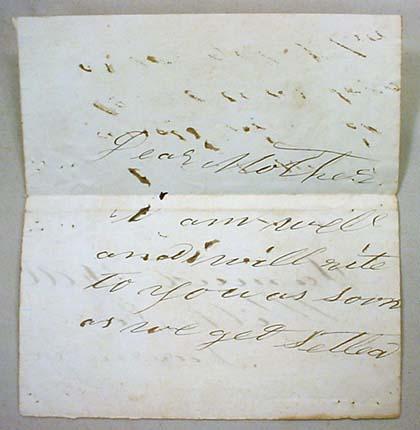 Dear Mother
I am well
and will rite
to you as soon
as we get Setled